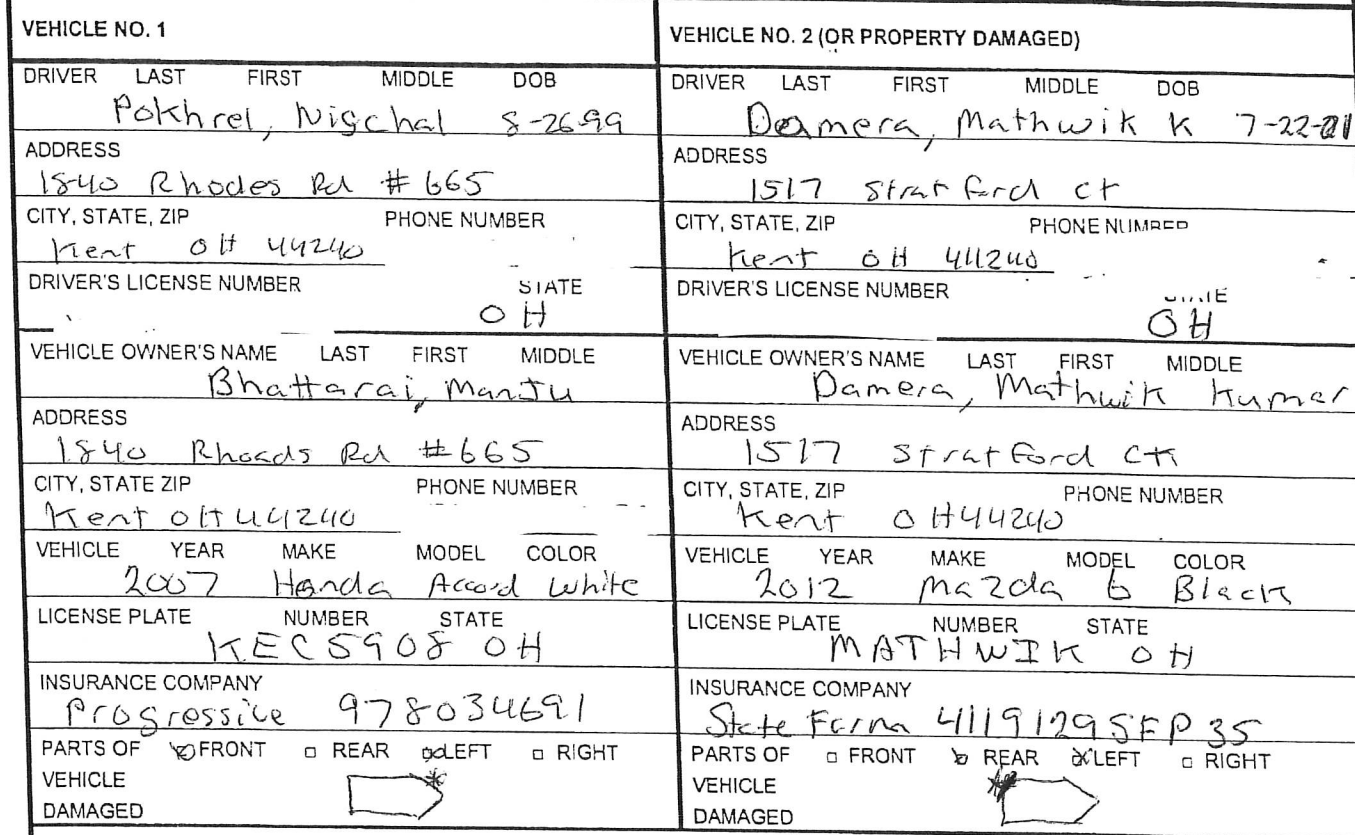 VEHICLE NO. 1
DRIVER LAST FIRST MIDDLE DOB
Pokhrel, Nigchal 8-26-99
ADDRESS
1840 Rhodes Rd #665
CITY, STATE, ZIP PHONE NUMBER
Kent OH 44240
DRIVER'S LICENSE NUMBER STATE
OH
VEHICLE OWNER'S NAME LAST FIRST MIDDLE
Bhattarai, Manju
ADDRESS
1840 Rhoads Rd #665
CITY, STATE ZIP PHONE NUMBER
Kent OH 44240
VEHICLE YEAR MAKE MODEL COLOR
2007 Honda Accord White
LICENSE PLATE NUMBER STATE
KEC5908 OH
INSURANCE COMPANY
Progressive 978034691
PARTS OF FRONT REAR LEFT RIGHT
VEHICLE
DAMAGED
VEHICLE NO. 2 (OR PROPERTY DAMAGED)
DRIVER LAST FIRST MIDDLE DOB
Damera, Mathwik K 7-22-01
ADDRESS
1517 Stratford ct
CITY, STATE, ZIP PHONE NUMBER
Kent OH 44240
DRIVER'S LICENSE NUMBER STATE
OH
VEHICLE OWNER'S NAME LAST FIRST MIDDLE
Damera, Mathwik Kumar
ADDRESS
1517 Stratford Ct
CITY, STATE, ZIP PHONE NUMBER
Kent OH 44240
VEHICLE YEAR MAKE MODEL COLOR
2012 Mazda 6 Black
LICENSE PLATE NUMBER STATE
MATHWIK OH
INSURANCE COMPANY
State Farm 4119129SFP35
PARTS OF FRONT REAR LEFT RIGHT
VEHICLE
DAMAGED